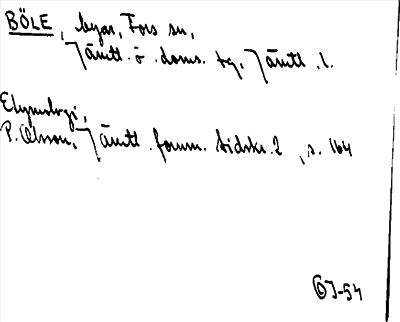 BÖLE, byar, Fors sn,
Jämtl. ö. doms. tg, Jämtl. l.
Etymologi,
P. Olsson, Jämtl. fornm. tidskr. 2, s. 164
ÖJ-54